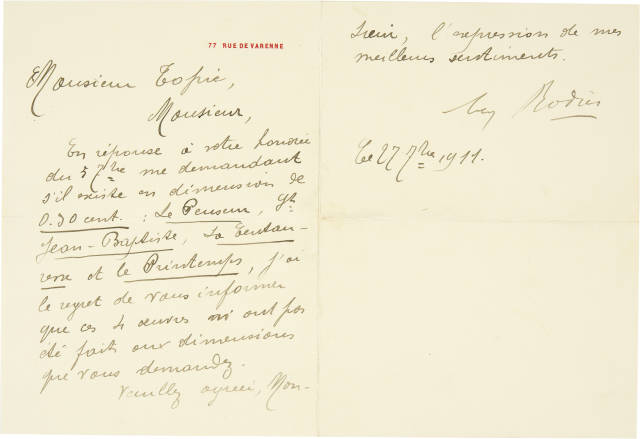 77 RUE DE VARENNE
Monsieur Topie,
Monsieur,
En réponse à votre honorée
du 5 7bre me demandant
s'il existe en dimension de
0.30 cent. : Le Penseur, St
Jean-Baptiste, La Centau-
resse et le Printemps, j'ai
le regret de vous informer
que ces 4 œuvres n'ont pas
été faits aux dimensions
que vous demandez.
Veuillez agréer, Mon-
sieur, l'expression de mes
meilleurs sentiments.
Aug Rodin
Ce 27 7bre 1911.